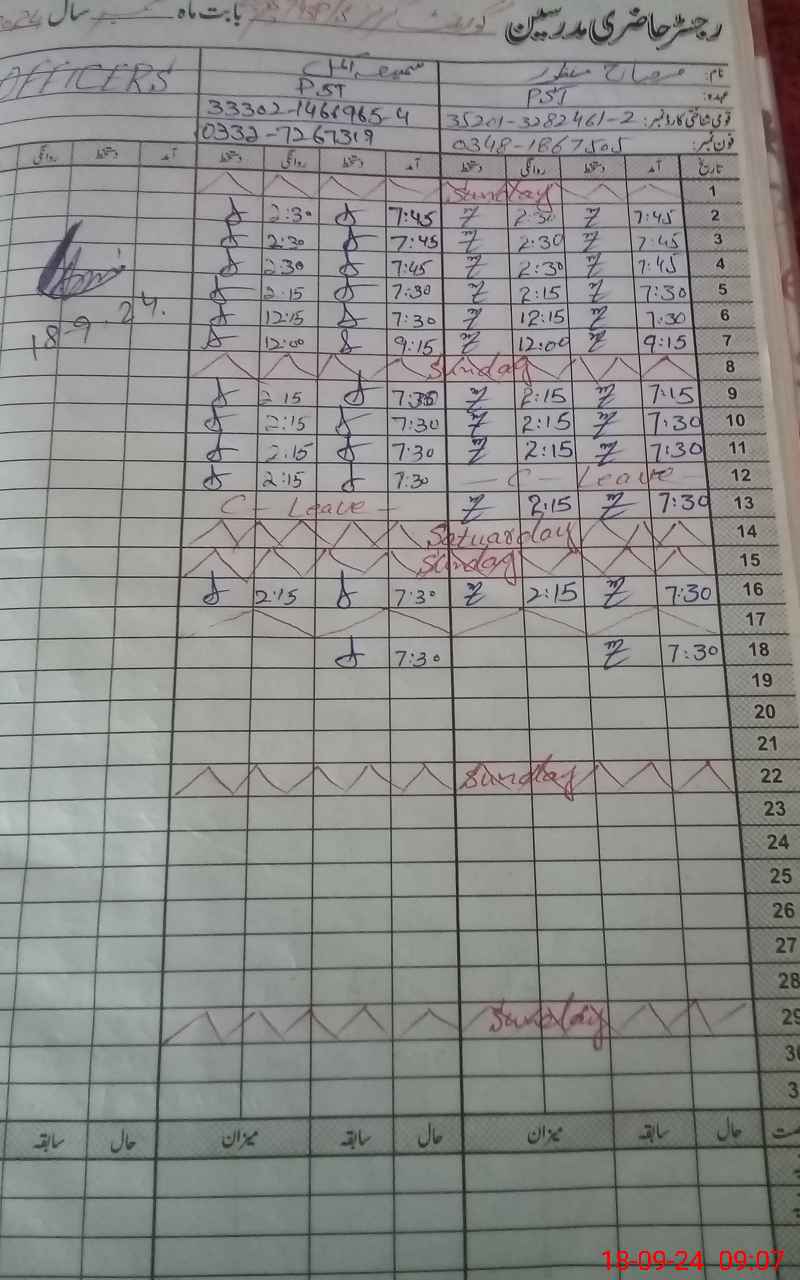 رجسٹر حاضری مدرسین بابت ماہ سال 2024
نام:
OFFICERS
عہدہ: PST PST
قومی شناختی کارڈ نمبر: 35201-3282461-2 33302-1461965-4
فون نمبر: 0348-1867505 0332-7267319
تاریخ آمد دستخط روانگی دستخط آمد دستخط روانگی دستخط آمد دستخط روانگی
1 Sunday
2 7:45 2:30 7:45 2:30
3 7:45 2:30 7:45 2:30
4 7:45 2:30 7:45 2:30
5 7:30 2:15 7:30 2:15
6 7:30 12:15 7:30 12:15
7 9:15 12:00 9:15 12:00
18-9-24.
8 Sunday
9 7:15 2:15 7:30 2:15
10 7:30 2:15 7:30 2:15
11 7:30 2:15 7:30 2:15
12 — C — Leave — 7:30 2:15
13 7:30 2:15 C — Leave —
14 Satuarday
15 Sunday
16 7:30 2:15 7:30 2:15
17
18 7:30 7:30
19
20
21
22 Sunday
23
24
25
26
27
28
29 Sunday
30
3
حال سابقہ میزان حال سابقہ میزان حال سابقہ
18-09-24 09:07